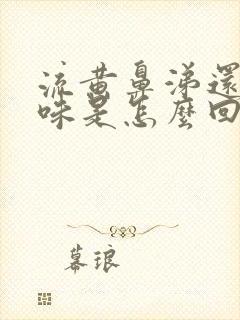 流黄鼻涕還
味是怎麼回
幕琅